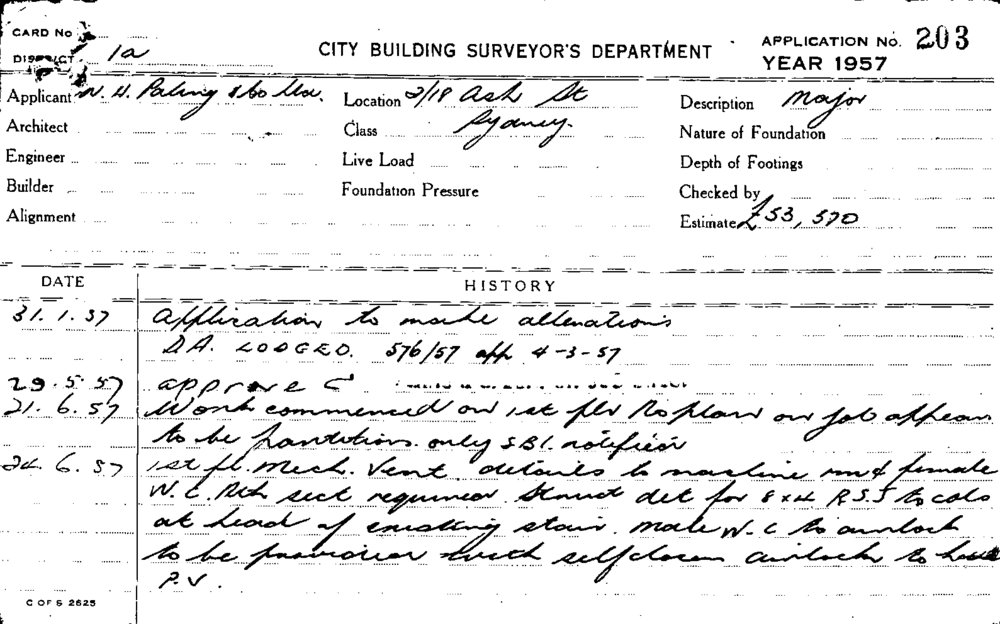 CARD No
DISTRICT 1a
CITY BUILDING SURVEYOR'S DEPARTMENT
APPLICATION No. 203
YEAR 1957
Applicant W. H. Paling & Co Ltd. Location 2/18 Ash St Description Major
Architect Class Sydney. Nature of Foundation
Engineer Live Load Depth of Footings
Builder Foundation Pressure Checked by
Alignment Estimate £53,570
DATE HISTORY
31.1.57 Application to make alterations
D.A. LODGED. 576/57 app 4-3-57
29.5.57 approved
21.6.57 Work commenced on 1st flr No plan on job appears
to be partitions only S.B.I. notified
24.6.57 1st fl. Mech. Vent. details to machine rm & female
W.C. Nth sect required. Struct det for 8x4 R.S.J to cols
at head of existing stair. Male W.C to airlock
to be provided with selfcloser airlock to have
P.V.
C OF S 2625